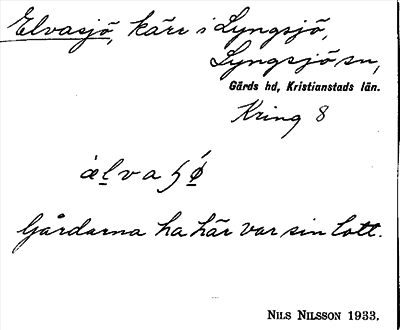 Elvasjö, kärr i Lyngsjö,
Lyngsjö sn,
Gärds hd, Kristianstads län.
Kring 8
Gårdarna ha här var sin lott.
NILS NILSSON 1933.